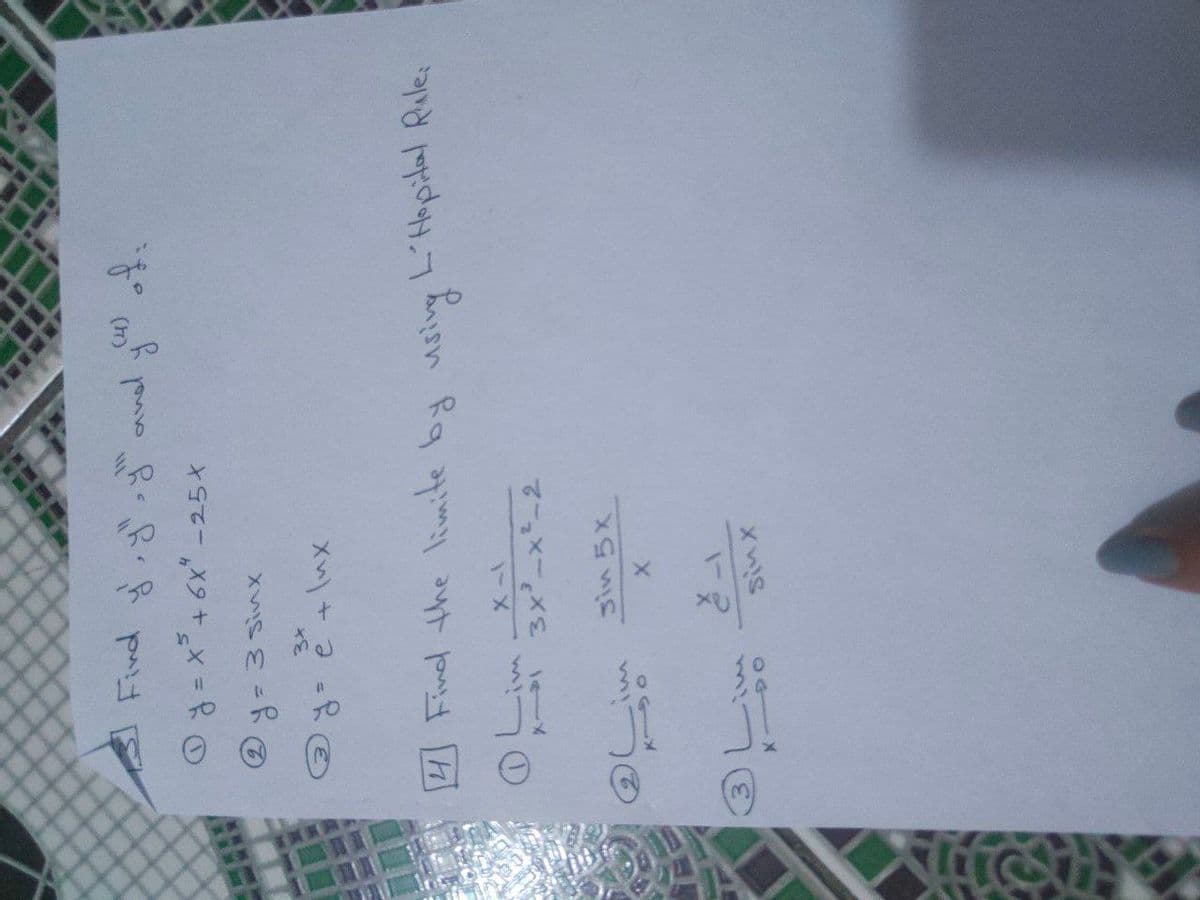 3 Find y', y'', y''' and y⁽⁴⁾ of:
① y = x⁵ + 6x⁴ - 25x
② y = 3 sinx
③ y = e³ˣ + lnx
4 Find the limite by using L'Hopital Rule:
① Lim x→1 (x-1)/(3x³-x²-2)
② Lim x→0 (sin 5x)/x
③ Lim x→0 (eˣ-1)/(sinx)